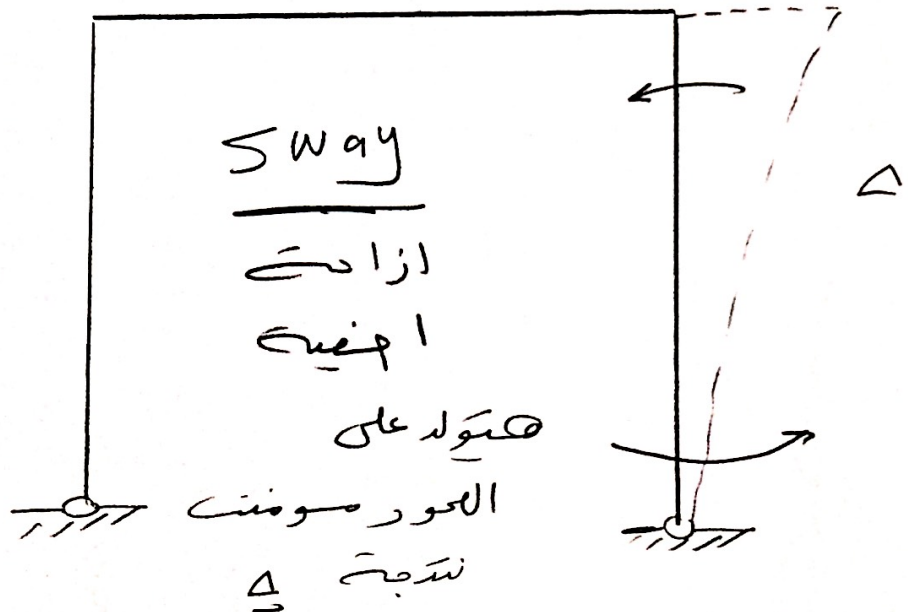 Sway
ازاحة
افقية
هيتولد على
العمود مومنت
نتيجة Δ
Δ